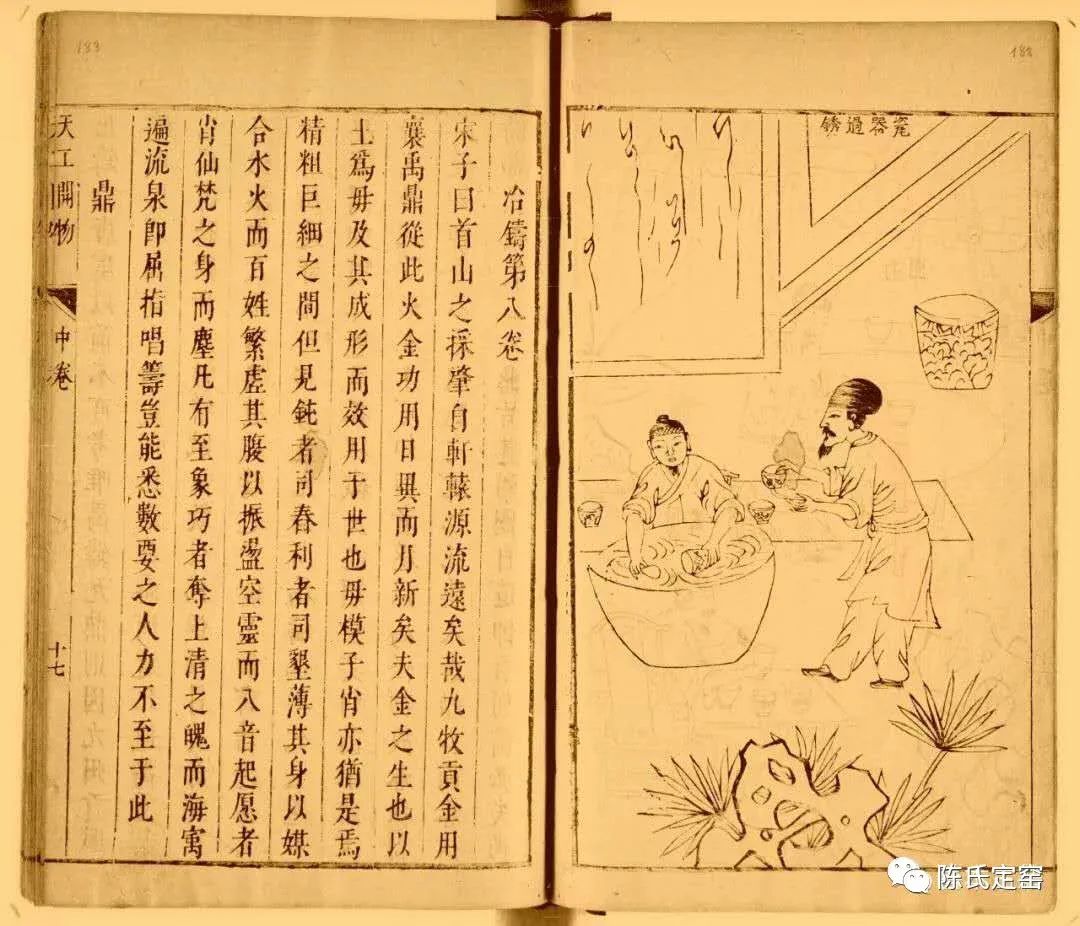 瓷器過銹
冶鑄第八卷
宋子曰首山之採肇自軒轅源流遠矣哉九牧貢金用
襄禹鼎從此火金功用日異而月新矣夫金之生也以
土爲母及其成形而效用于世也母模子肖亦猶是焉
精粗巨細之間但見鈍者司舂利者司墾薄其身以媒
合水火而百姓繁虛其腹以振盪空靈而八音起愿者
肖仙梵之身而塵凡有至象巧者奪上清之魄而海寓
遍流泉即屈指唱籌豈能悉數要之人力不至于此
鼎
天工開物 中卷 十七
183
陈氏定窑